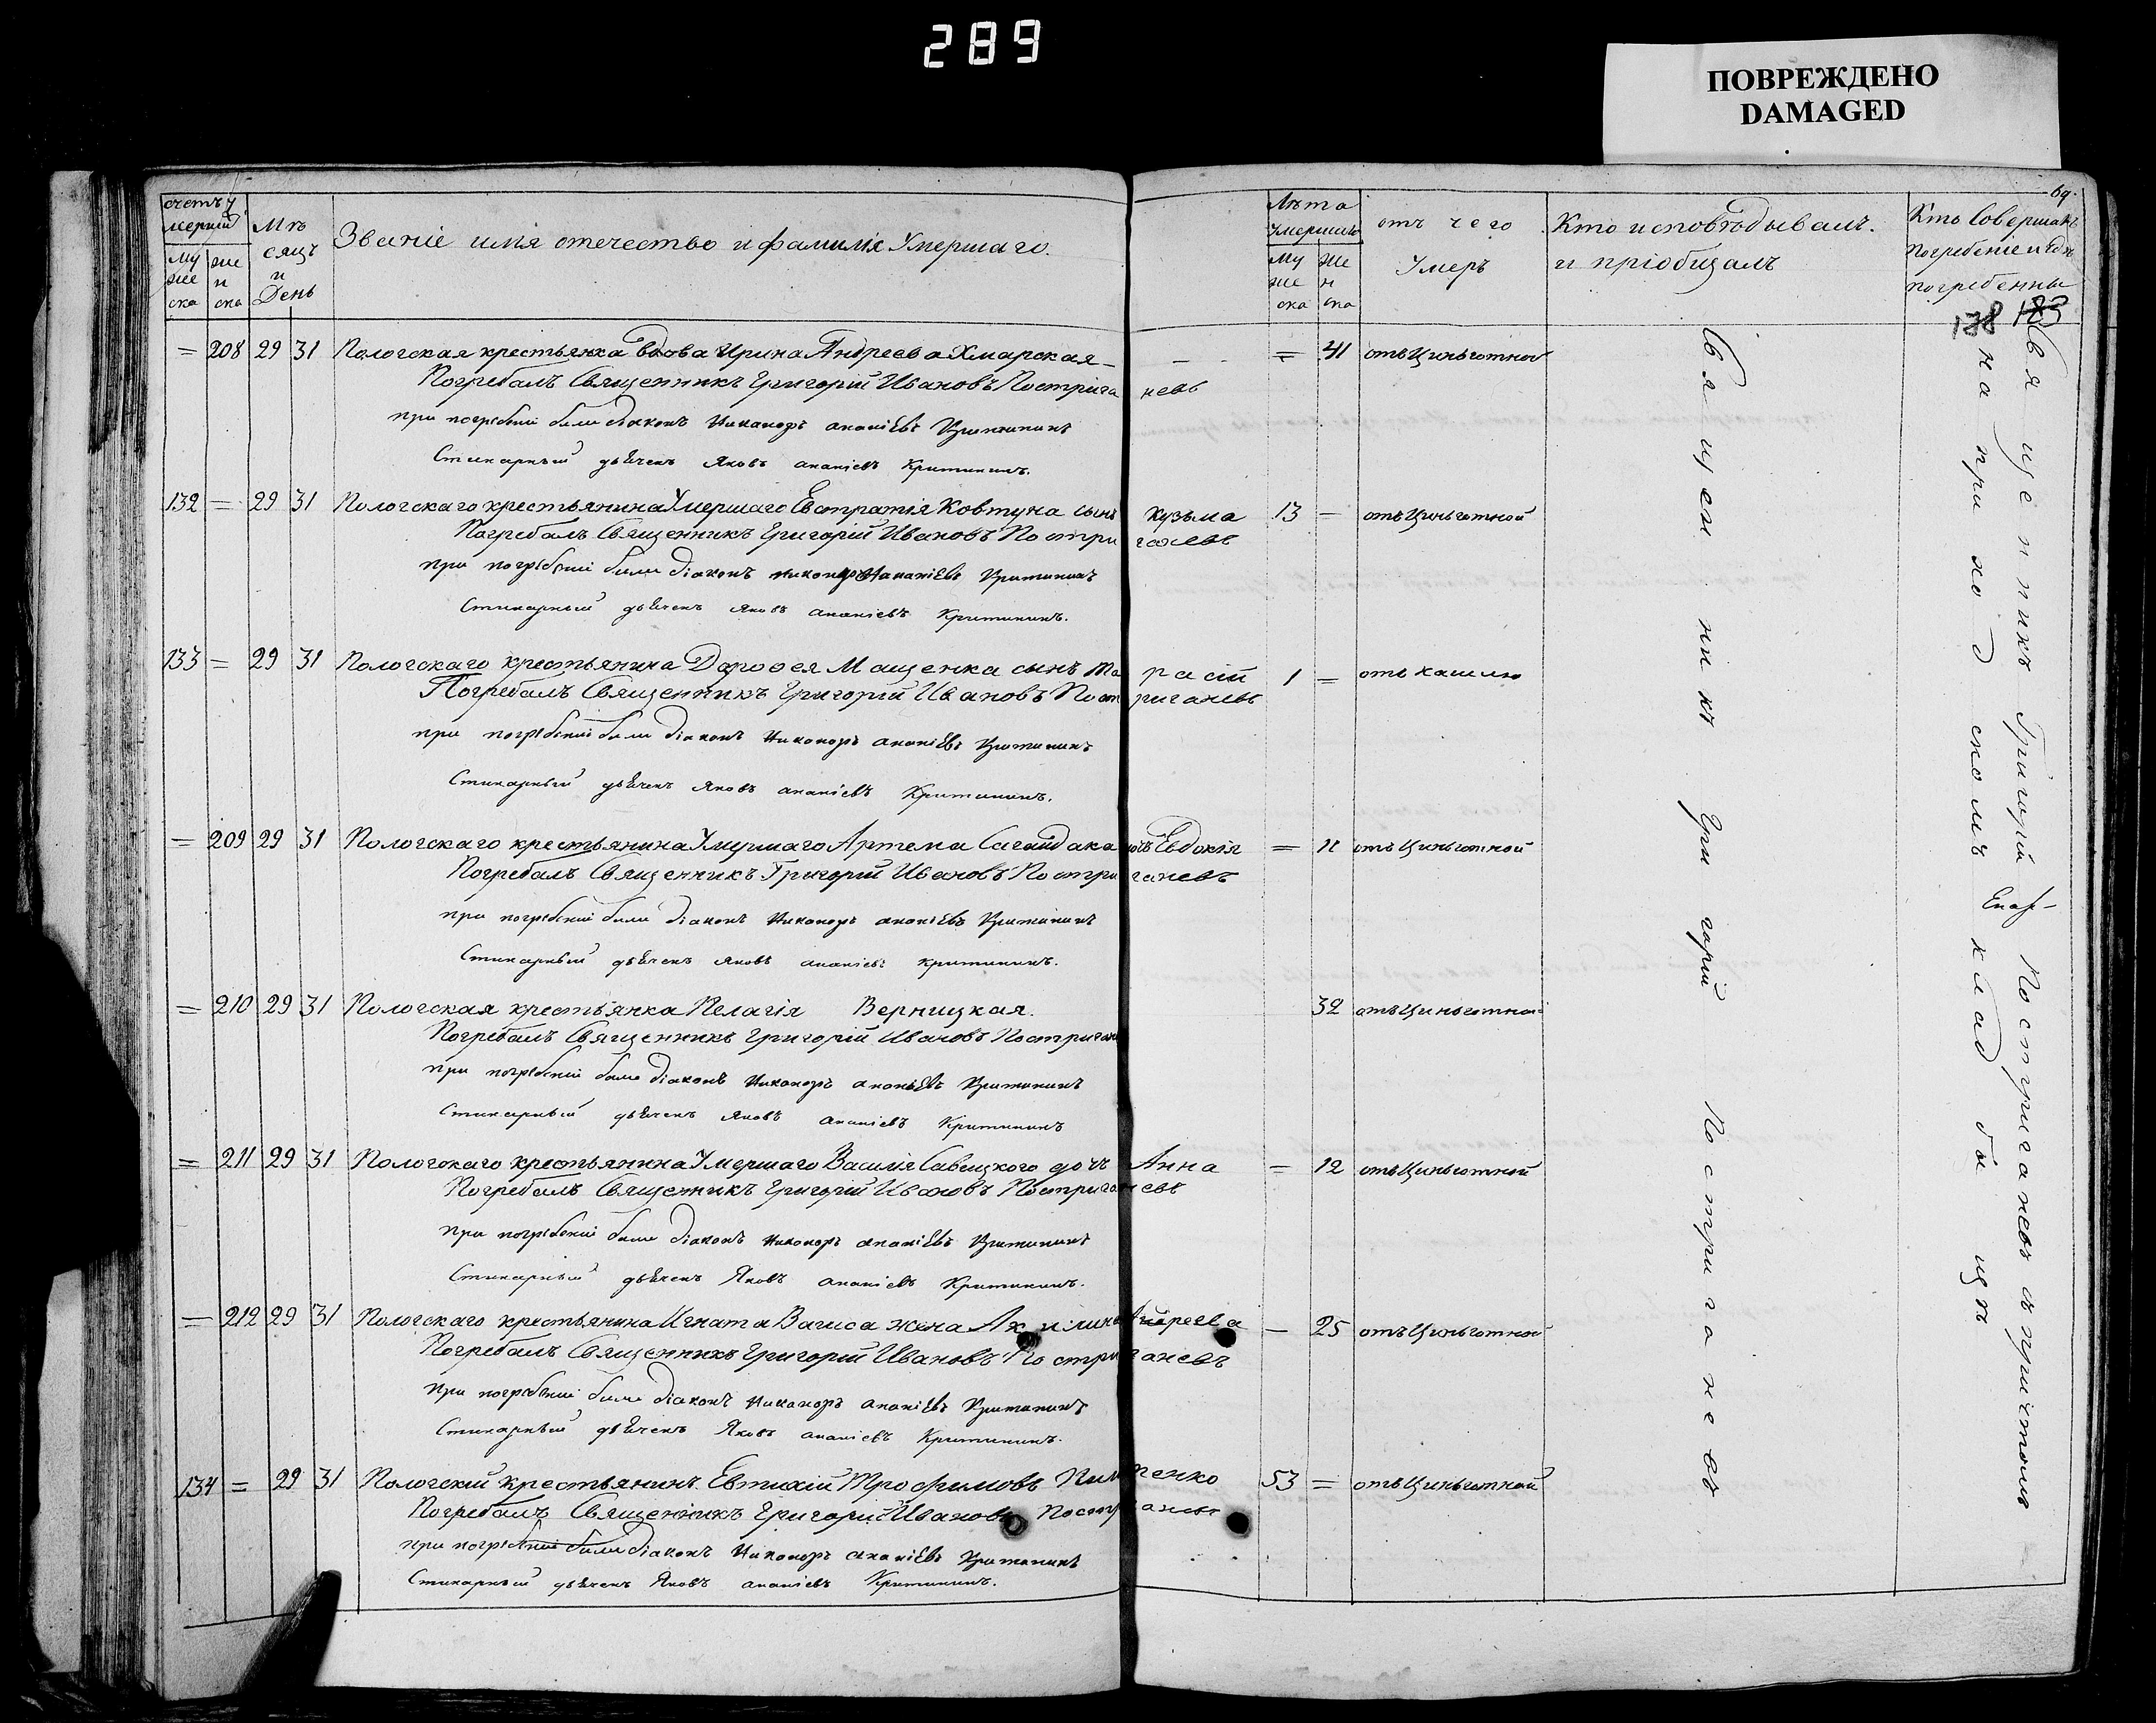 289
ПОВРЕЖДЕНО
DAMAGED
69.
счетъ у мершiй
Му жс ска
же н ска
Мѣ сяцъ и День
Званіе имя отечество и фамилія Умершаго.
Лѣта умершихъ
Му же ска
Же н ска
отъ чего Умеръ
Кто исповѣдывалъ. и пріобщалъ
Кто Совершалъ погребеніе и гдѣ погребенны
138 123
= 208 29 31 Пологская крестьянка вдова Ирина Андреева Хмарская = 41 отъ Цынготной
Погребалъ Священникъ Григорій Ивановъ Постриганевъ
при погребеніи были діаконъ Никаноръ Ананіевъ Критининъ
Стихарный дьячекъ Яковъ Ананіевъ Критининъ.
132 = 29 31 Пологскаго крестьянина Умершаго Евстратія Ковтуна сынъ Кузьма 13 = отъ Цынготной
Погребалъ Священникъ Григорій Ивановъ Постриганевъ
при погребеніи были діаконъ Никаноръ Ананіевъ Критининъ
Стихарный дьячекъ Яковъ Ананіевъ Критининъ.
133 = 29 31 Пологскаго крестьянина Дорофея Мащенка сынъ Тарасій 1 = отъ кашлю
Погребалъ Священникъ Григорій Ивановъ Постриганевъ
при погребеніи были діаконъ Никаноръ Ананіевъ Критининъ
Стихарный дьячекъ Яковъ Ананіевъ Критининъ.
= 209 29 31 Пологскаго крестьянина Умершаго Артема Сагайдака дочь Евдокія = 11 отъ Цынготной
Погребалъ Священникъ Григорій Ивановъ Постриганевъ
при погребеніи были діаконъ Никаноръ Ананіевъ Критининъ
Стихарный дьячекъ Яковъ Ананіевъ Критининъ.
= 210 29 31 Пологская крестьянка Пелагія Верницкая. 32 отъ Цынготной
Погребалъ Священникъ Григорій Ивановъ Постриган
при погребеніи были діаконъ Никаноръ Ананьевъ Критининъ
Стихарный дьячекъ Яковъ Ананіевъ Критининъ
= 211 29 31 Пологскаго крестьянина Умершаго Василія Савицкого дочь Анна = 12 отъ Цынготной
Погребалъ Священникъ Григорій Ивановъ Постриганевъ
при погребеніи были діаконъ Никаноръ Ананіевъ Критининъ
Стихарный дьячекъ Яковъ Ананіевъ Критининъ.
= 212 29 31 Пологскаго крестьянина Игната Вагиса жена Акилина Андреева – 25 отъ Цынготной
Погребалъ Священникъ Григорій Ивановъ Постриганевъ
при погребеніи были діаконъ Никаноръ Ананіевъ Критининъ
Стихарный дьячекъ Яковъ Ананіевъ Критининъ.
134 = 29 31 Пологскій крестьянинъ Евтихій Трофимовъ 53 = отъ Цынготной
Погребалъ Священникъ Григорій Ивановъ Постриганевъ
при погребеніи были діаконъ Никаноръ Ананіевъ Критининъ
Стихарный дьячекъ Яковъ Ананіевъ Критининъ.
Священникъ Григорій Постриганевъ
Священникъ Григорій Постриганевъ съ причтомъ
на приходскомъ кладбищѣ